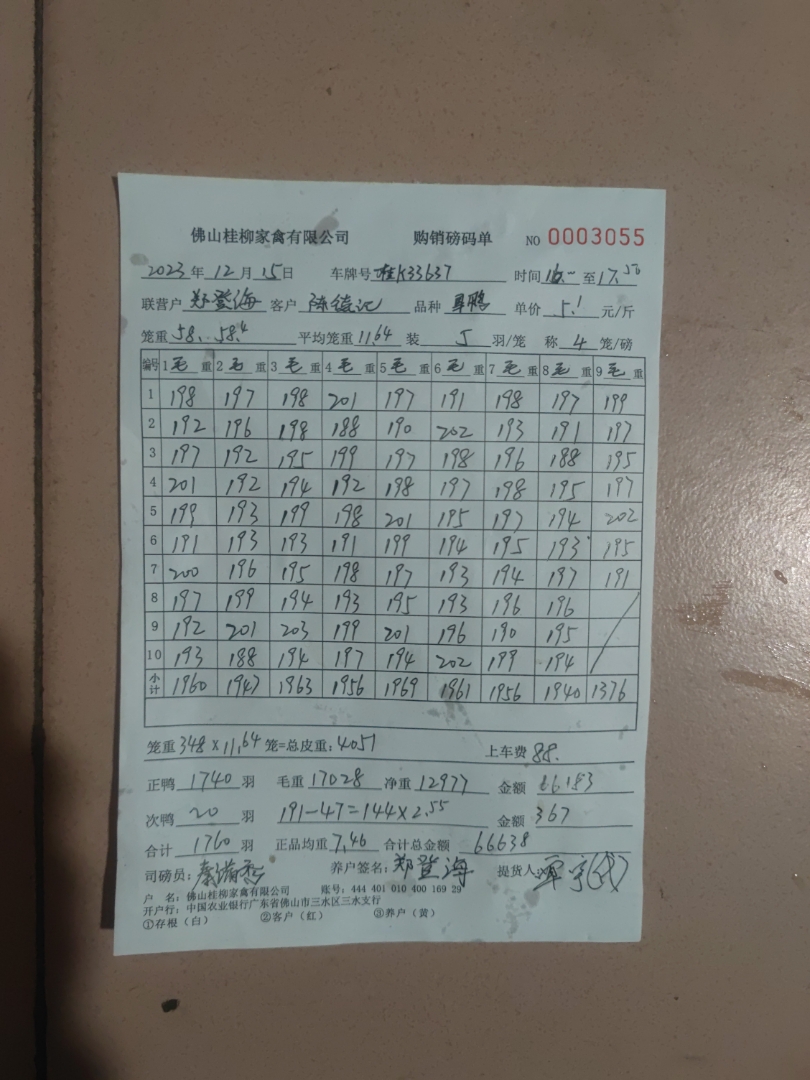 佛山桂柳家禽有限公司 购销磅码单 NO 0003055
2023年12月15日 车牌号 桂K33637 时间 16.00 至 17.50
联营户 郑登海 客户 陈德记 品种 单价 5.1 元/斤
笼重 58. 58.4 平均笼重 11.64 装 5 羽/笼 称 4 笼/磅
编号 1 毛 重 2 毛 重 3 毛 重 4 毛 重 5 毛 重 6 毛 重 7 毛 重 8 毛 重 9 毛 重
1 198 197 198 201 197 191 198 197 199
2 192 196 198 188 190 202 193 191 197
3 197 192 195 199 197 198 196 188 195
4 201 192 194 192 198 197 198 195 197
5 199 193 199 198 201 195 197 194 202
6 191 193 193 191 199 194 195 193 195
7 200 196 195 198 197 193 194 197 191
8 197 199 194 193 195 193 196 196
9 192 201 203 199 201 196 190 195
10 193 188 194 197 194 202 199 194
小计 1960 1947 1963 1956 1969 1961 1956 1940 1376
笼重 348 × 11.64 笼=总皮重: 4051 上车费 88.
正鸭 1740 羽 毛重 17028 净重 12977 金额 66183
次鸭 20 羽 191-47=144×2.55 金额 367
合计 1760 羽 正品均重 7.46 合计总金额 66638
司磅员: 养户签名: 郑登海 提货人:
户 名: 佛山桂柳家禽有限公司 账号: 444 401 010 400 169 29
开户行: 中国农业银行广东省佛山市三水区三水支行
①存根（白） ②客户（红） ③养户（黄）